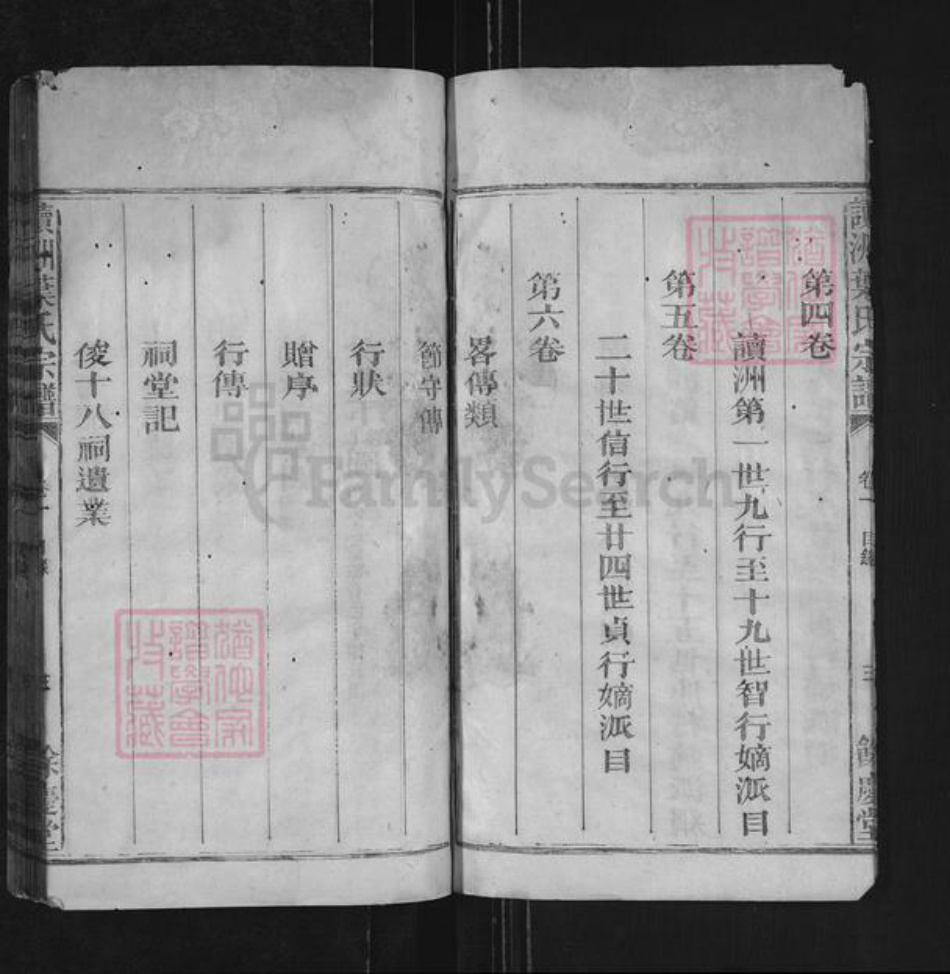 第四卷
讀洲第一世九行至十九世智行嫡派目
第五卷
二十世信行至廿四世貞行嫡派目
第六卷
畧傳類
節守傳
行狀
贈序
行傳
祠堂記
俊十八祠遺業
讀洲葉氏宗譜
卷一
目錄
三
餘慶堂
讀洲葉氏宗譜
卷一
三
餘慶堂
FamilySearch
譜學會
收藏
譜學會
收藏